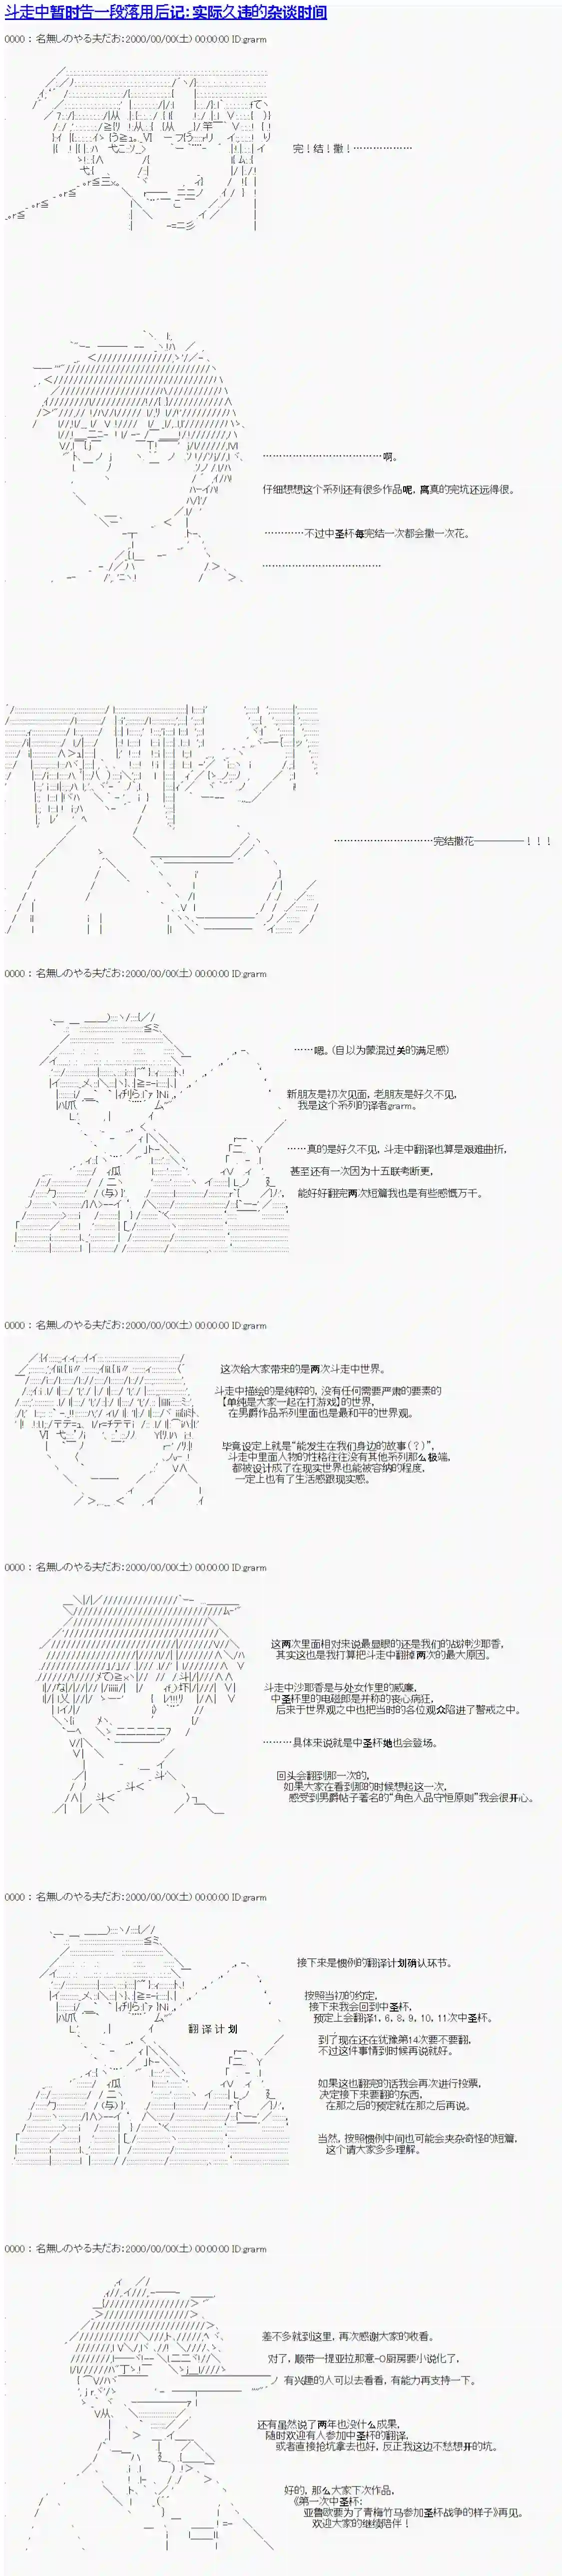 斗走中暂时告一段落用后记：实际久违的杂谈时间
0000 ： 名無しのやる夫だお：2000/00/00(土) 00:00:00 ID:grarm
完！结！撒！………………
…………………………………啊。
仔细想想这个系列还有很多作品呢，离真的完坑还远得很。
…………不过中圣杯每完结一次都会撒一次花。
………………………………
…………………………完结撒花――――――！！！
0000 ： 名無しのやる夫だお：2000/00/00(土) 00:00:00 ID:grarm
……嗯。（自以为蒙混过关的满足感）
新朋友是初次见面，老朋友是好久不见，
我是这个系列的译者grarm。
……真的是好久不见，斗走中翻译也算是艰难曲折，
甚至还有一次因为十五联考断更，
能好好翻完两次短篇我也是有些感慨万千。
0000 ： 名無しのやる夫だお：2000/00/00(土) 00:00:00 ID:grarm
这次给大家带来的是两次斗走中世界。
斗走中描绘的是纯粹的，没有任何需要严肃的要素的
【单纯是大家一起在打游戏】的世界，
在男爵作品系列里面也是最和平的世界观。
毕竟设定上就是“能发生在我们身边的故事（？）”，
斗走中里面人物的性格往往没有其他系列那么极端，
都被设计成了在现实世界也能被容纳的程度，
一定上也有了生活感跟现实感。
0000 ： 名無しのやる夫だお：2000/00/00(土) 00:00:00 ID:grarm
这两次里面相对来说最显眼的还是我们的战神沙耶香，
其实这也是我打算把斗走中翻掉两次的最大原因。
斗走中沙耶香是与处女作里的威廉，
中圣杯里的电磁郎是并称的丧心病狂，
后来于世界观之中也把当时的各位观众陷进了警戒之中。
………具体来说就是中圣杯她也会登场。
回头会翻到那一次的，
如果大家在看到那的时候想起这一次，
感受到男爵帖子著名的“角色人品守恒原则”我会很开心。
0000 ： 名無しのやる夫だお：2000/00/00(土) 00:00:00 ID:grarm
接下来是惯例的翻译计划确认环节。
按照当初的约定，
接下来我会回到中圣杯，
预定上会翻译1，6，8，9，10，11次中圣杯。
翻 译 计 划
到了现在还在犹豫第14次要不要翻，
不过这件事情到时候再说就好。
如果这也翻完的话我会再次进行投票，
决定接下来要翻的东西，
在那之后的预定就在那之后再说。
当然，按照惯例中间也可能会夹杂奇怪的短篇，
这个请大家多多理解。
0000 ： 名無しのやる夫だお：2000/00/00(土) 00:00:00 ID:grarm
差不多就到这里，再次感谢大家的收看。
对了，顺带一提亚拉那意-O厨房要小说化了，
有兴趣的人可以去看看，有能力再支持一下。
还有虽然说了两年也没什么成果，
随时欢迎有人参加中圣杯的翻译，
或者直接抢坑拿去也好，反正我这边不愁想开的坑。
好的，那么大家下次作品，
《第一次中圣杯：
亚鲁欧要为了青梅竹马参加圣杯战争的样子》再见。
欢迎大家的继续陪伴！